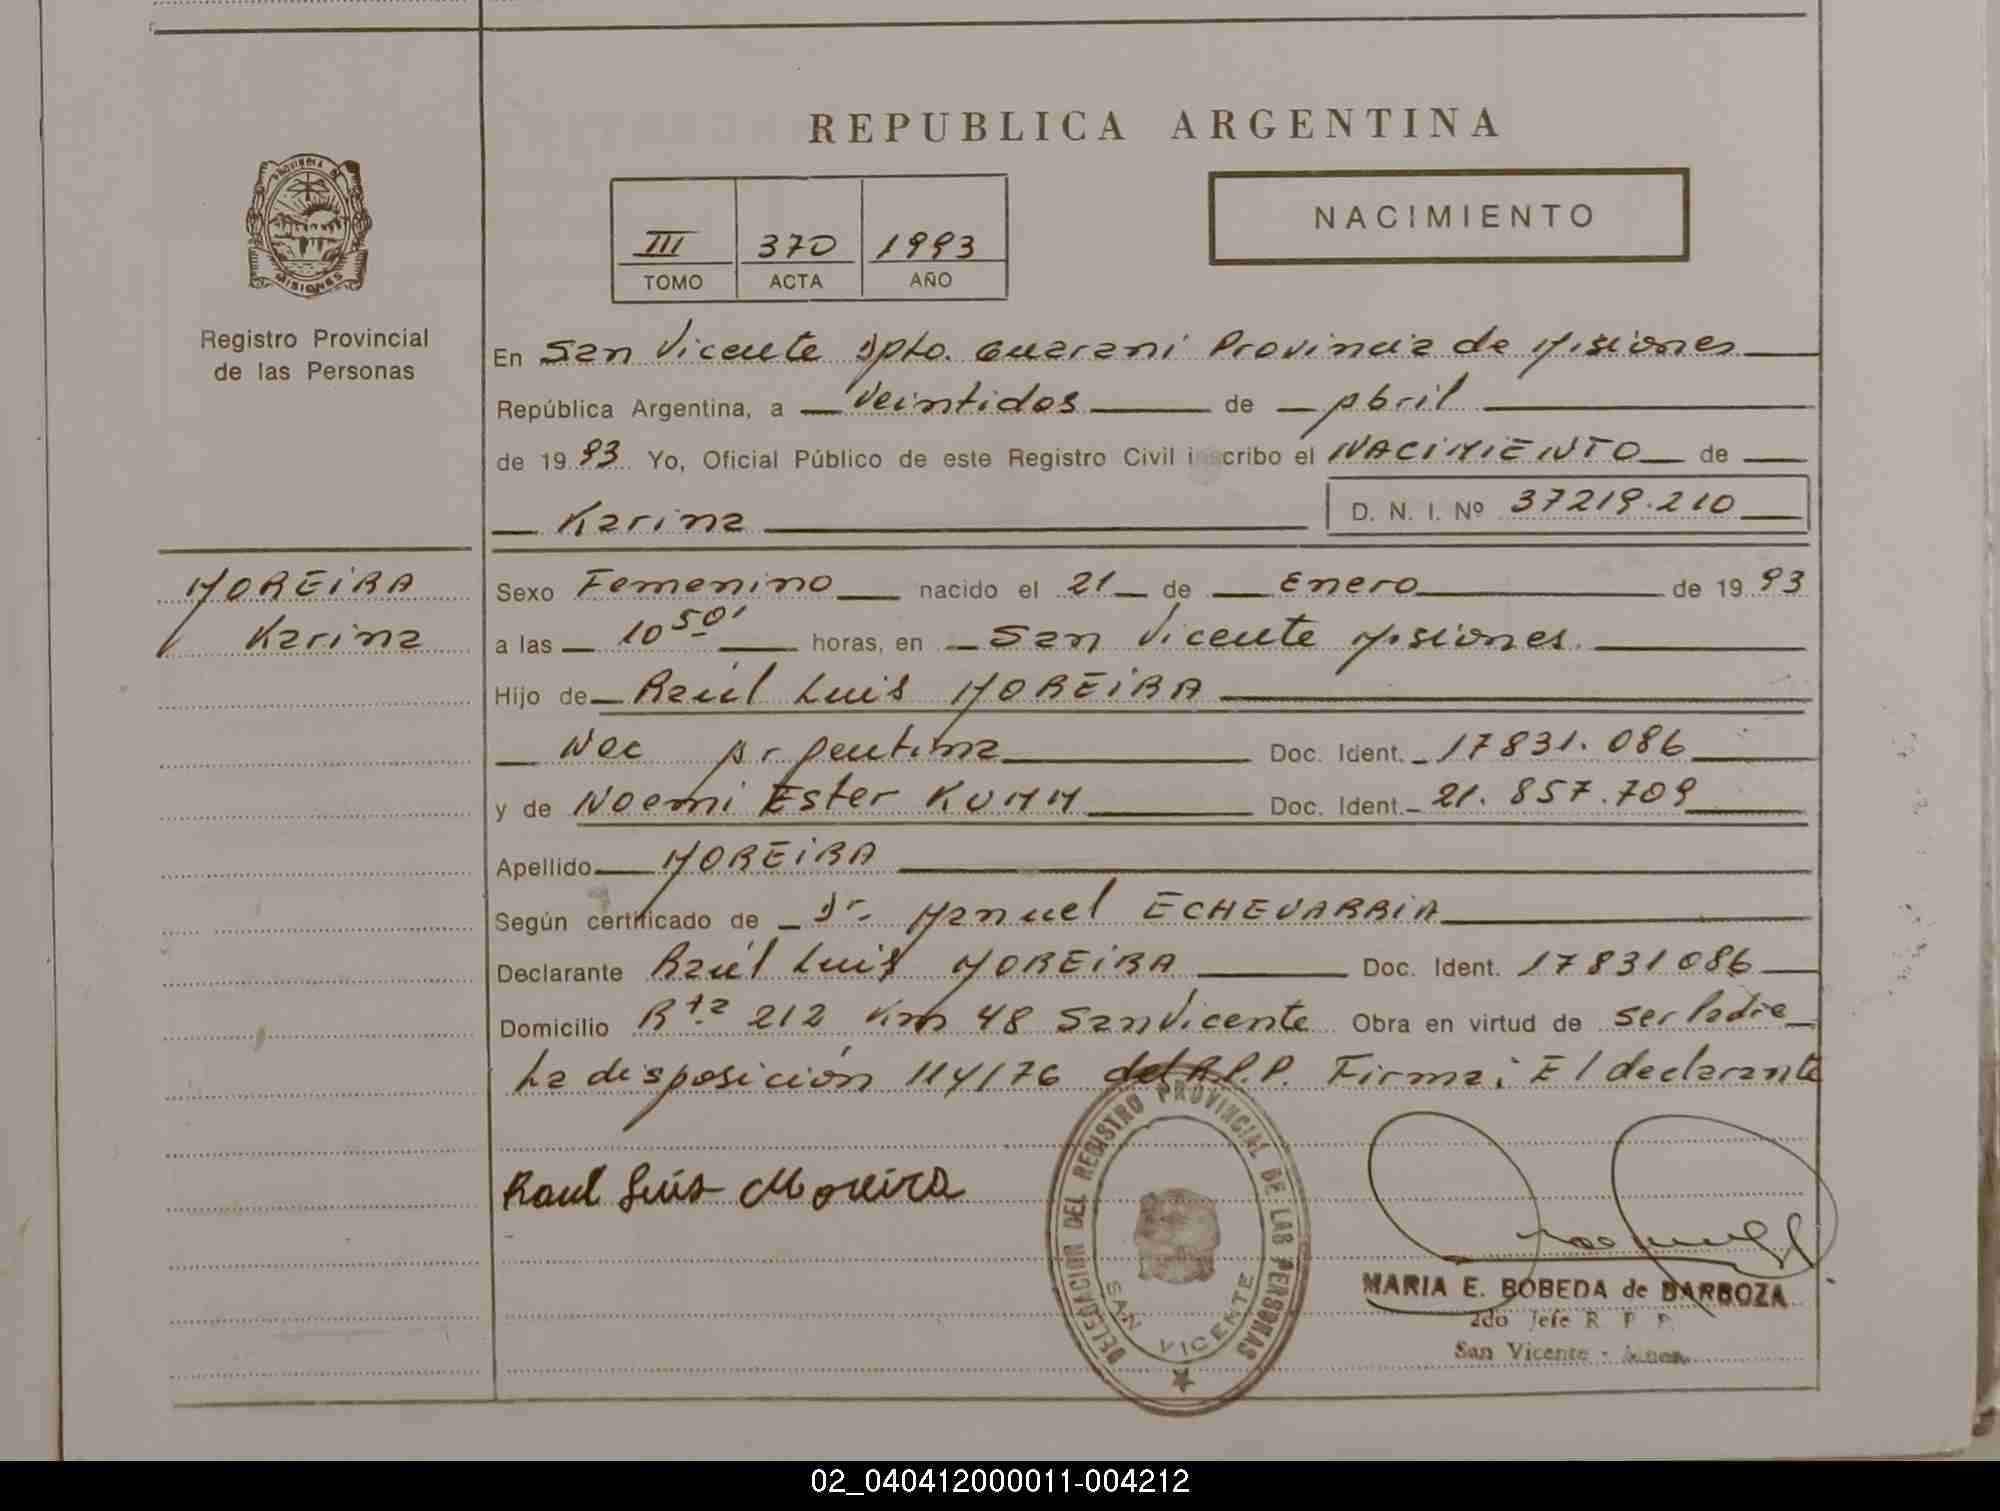 REPUBLICA ARGENTINA
PROVINCIA DE
MISIONES
Registro Provincial
de las Personas
III 370 1993
TOMO ACTA AÑO
NACIMIENTO
En San Vicente Dpto. Guaraní Provincia de Misiones
República Argentina, a Veintidos de Abril
de 1993 Yo, Oficial Público de este Registro Civil inscribo el NACIMIENTO de
Karina D. N. I. Nº 37219.210
MOREIRA
Karina
Sexo Femenino nacido el 21 de Enero de 1993
a las 10 50' horas, en San Vicente Misiones.
Hijo de Raúl Luis MOREIRA
Nac Argentina Doc. Ident. 17831.086
y de Noemi Ester KUMM Doc. Ident. 21.857.709
Apellido MOREIRA
Según certificado de Dr. Manuel ECHEVARRIA
Declarante Raúl Luis MOREIRA Doc. Ident. 17831086
Domicilio Rta 212 Km 48 San Vicente Obra en virtud de ser Padre
La disposición 114/76 del R.P.P. Firma: El declarante
Raul Luis Moreira
DELEGACION DEL REGISTRO PROVINCIAL DE LAS PERSONAS
SAN VICENTE
MARIA E. BOBEDA de BARBOZA
2do Jefe R P P
San Vicente -
02_040412000011-004212